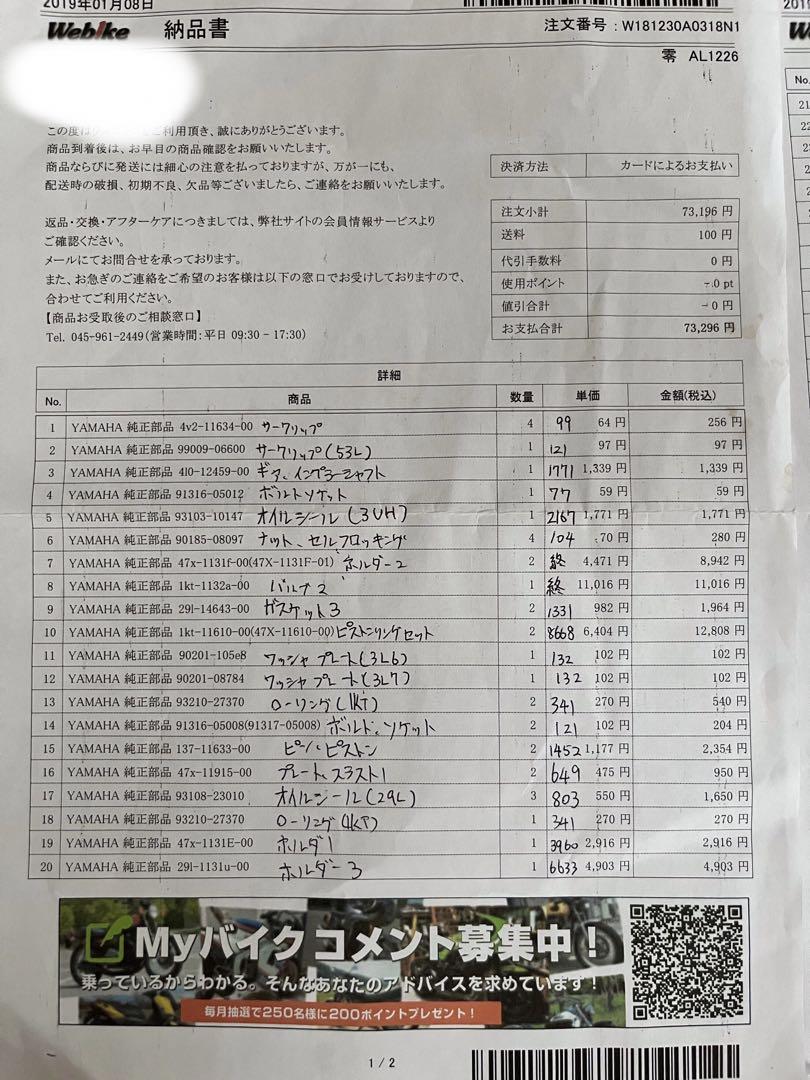 2019年01月08日
Webike 納品書
注文番号 : W181230A0318N1
零 AL1226
ご利用頂き、誠にありがとうございます。
商品到着後は、お早目の商品確認をお願いいたします。
商品ならびに発送には細心の注意を払っておりますが、万が一にも、
配送時の破損、初期不良、欠品等ございましたら、ご連絡をお願いいたします。
返品・交換・アフターケアにつきましては、弊社サイトの会員情報サービスより
ご確認ください。
メールにてお問合せを承っております。
また、お急ぎのご連絡をご希望のお客様は以下の窓口でお受けしておりますので、
合わせてご利用ください。
【商品お受取後のご相談窓口】
Tel. 045-961-2449(営業時間:平日 09:30 - 17:30)
決済方法 カードによるお支払い
注文小計 73,196 円
送料 100 円
代引手数料 0 円
使用ポイント -.0 pt
値引合計 -0 円
お支払合計 73,296 円
詳細
No. 商品 数量 単価 金額(税込)
1 YAMAHA 純正部品 4v2-11634-00 サークリップ 4 99 64 円 256 円
2 YAMAHA 純正部品 99009-06600 サークリップ(53L) 1 121 97 円 97 円
3 YAMAHA 純正部品 4l0-12459-00 ギヤ、インペラーシャフト 1 1771 1,339 円 1,339 円
4 YAMAHA 純正部品 91316-05012 ボルトソケット 1 77 59 円 59 円
5 YAMAHA 純正部品 93103-10147 オイルシール(3UH) 1 2167 1,771 円 1,771 円
6 YAMAHA 純正部品 90185-08097 ナット、セルフロッキング 4 104 70 円 280 円
7 YAMAHA 純正部品 47x-1131f-00(47X-1131F-01) ホルダー2 2 終 4,471 円 8,942 円
8 YAMAHA 純正部品 1kt-1132a-00 バルブ2 1 終 11,016 円 11,016 円
9 YAMAHA 純正部品 29l-14643-00 ガスケット3 2 1331 982 円 1,964 円
10 YAMAHA 純正部品 1kt-11610-00(47X-11610-00) ピストンリングセット 2 8668 6,404 円 12,808 円
11 YAMAHA 純正部品 90201-105e8 ワッシャプレート(3L6) 1 132 102 円 102 円
12 YAMAHA 純正部品 90201-08784 ワッシャプレート(3L7) 1 132 102 円 102 円
13 YAMAHA 純正部品 93210-27370 O-リング(1KT) 2 341 270 円 540 円
14 YAMAHA 純正部品 91316-05008(91317-05008) ボルト、ソケット 2 121 102 円 204 円
15 YAMAHA 純正部品 137-11633-00 ピン、ピストン 2 1452 1,177 円 2,354 円
16 YAMAHA 純正部品 47x-11915-00 プレート、スラスト1 2 649 475 円 950 円
17 YAMAHA 純正部品 93108-23010 オイルシール(29L) 3 803 550 円 1,650 円
18 YAMAHA 純正部品 93210-27370 O-リング(1KT) 1 341 270 円 270 円
19 YAMAHA 純正部品 47x-1131E-00 ホルダ1 1 3960 2,916 円 2,916 円
20 YAMAHA 純正部品 29l-1131u-00 ホルダー3 1 6633 4,903 円 4,903 円
Myバイクコメント募集中!
乗っているからわかる。そんなあなたのアドバイスを求めています!
毎月抽選で250名様に200ポイントプレゼント!
1 / 2
No.
21